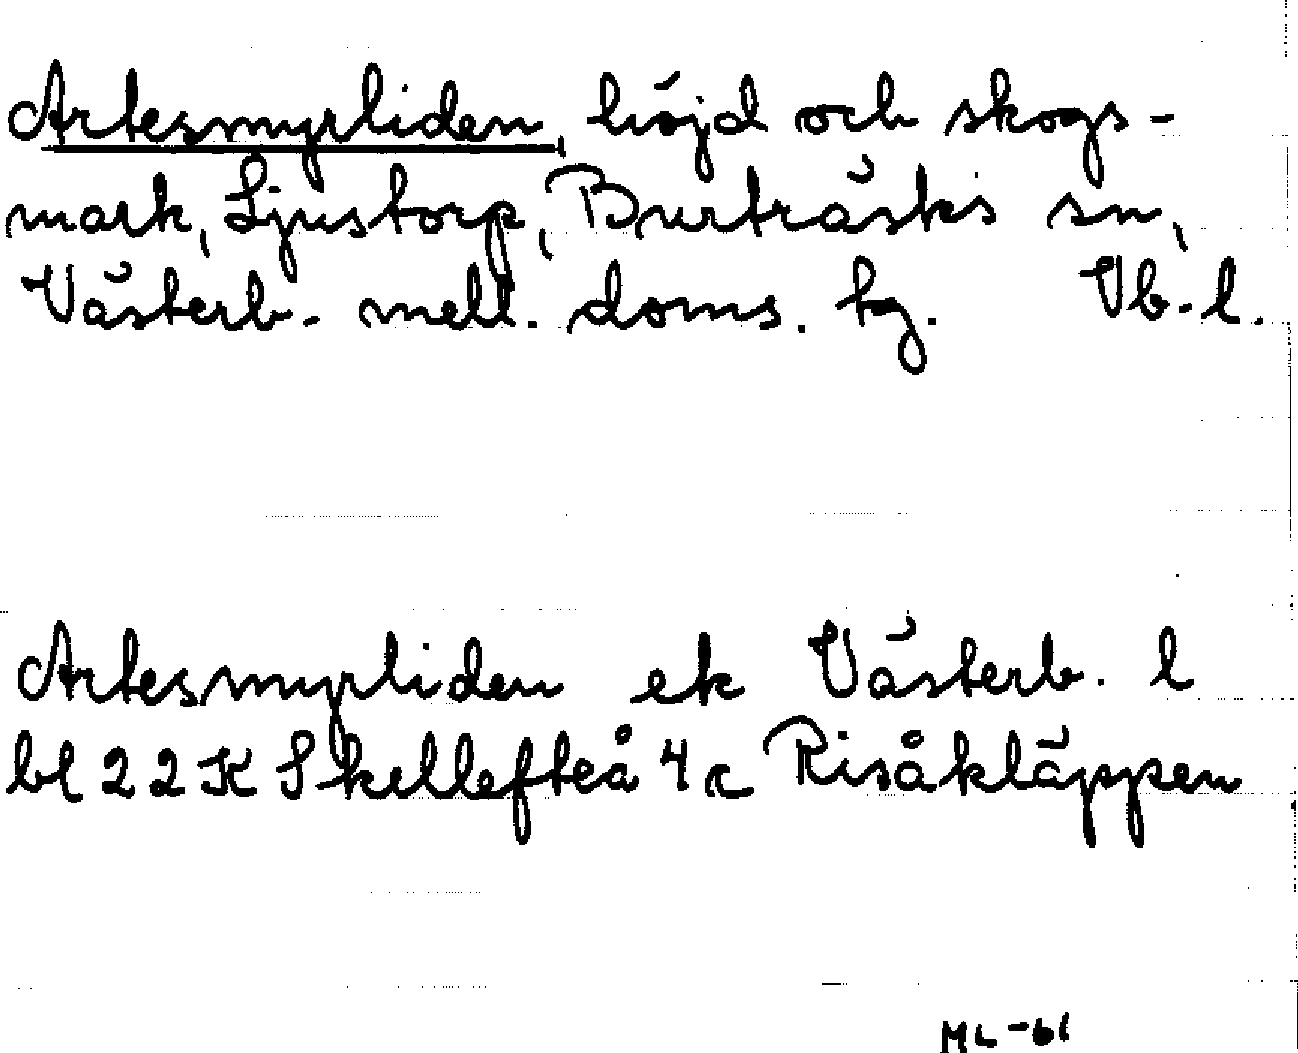 Artesmyrliden, höjd och skogs-
mark, Ljustorp, Burträsks sn,
Västerb. mell. doms. tg. Vb. l.
Artesmyrliden ek Västerb. l
bl 22K Skellefteå 4c Risåkläppen
ML -61